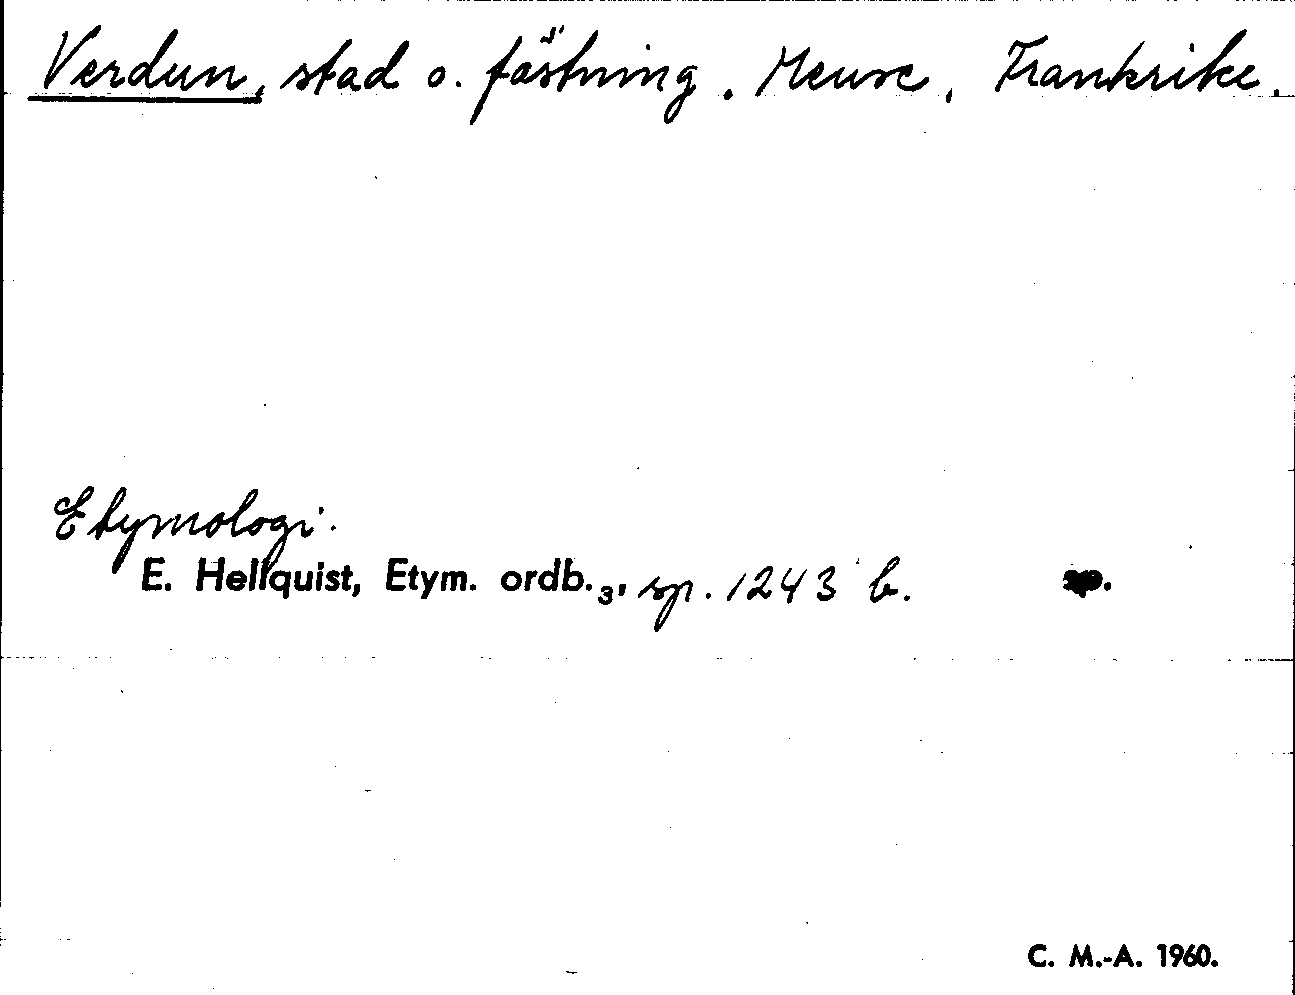 Verdun, stad o. fästning. Meuse, Frankrike.
Etymologi.
E. Hellquist, Etym. ordb.₃, sp. 1243 b. sp.
C. M.-A. 1960.